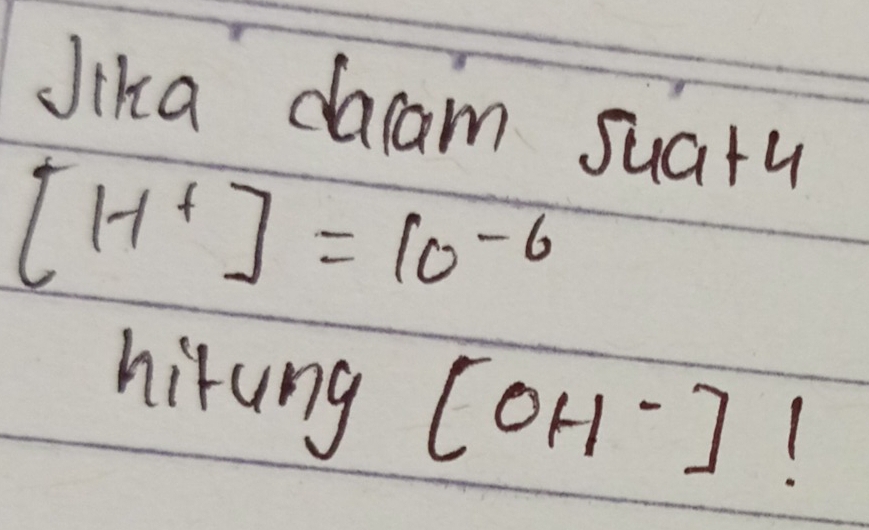 Jika dalam suatu
[H⁺] = 10⁻⁶
hitung [OH⁻]!